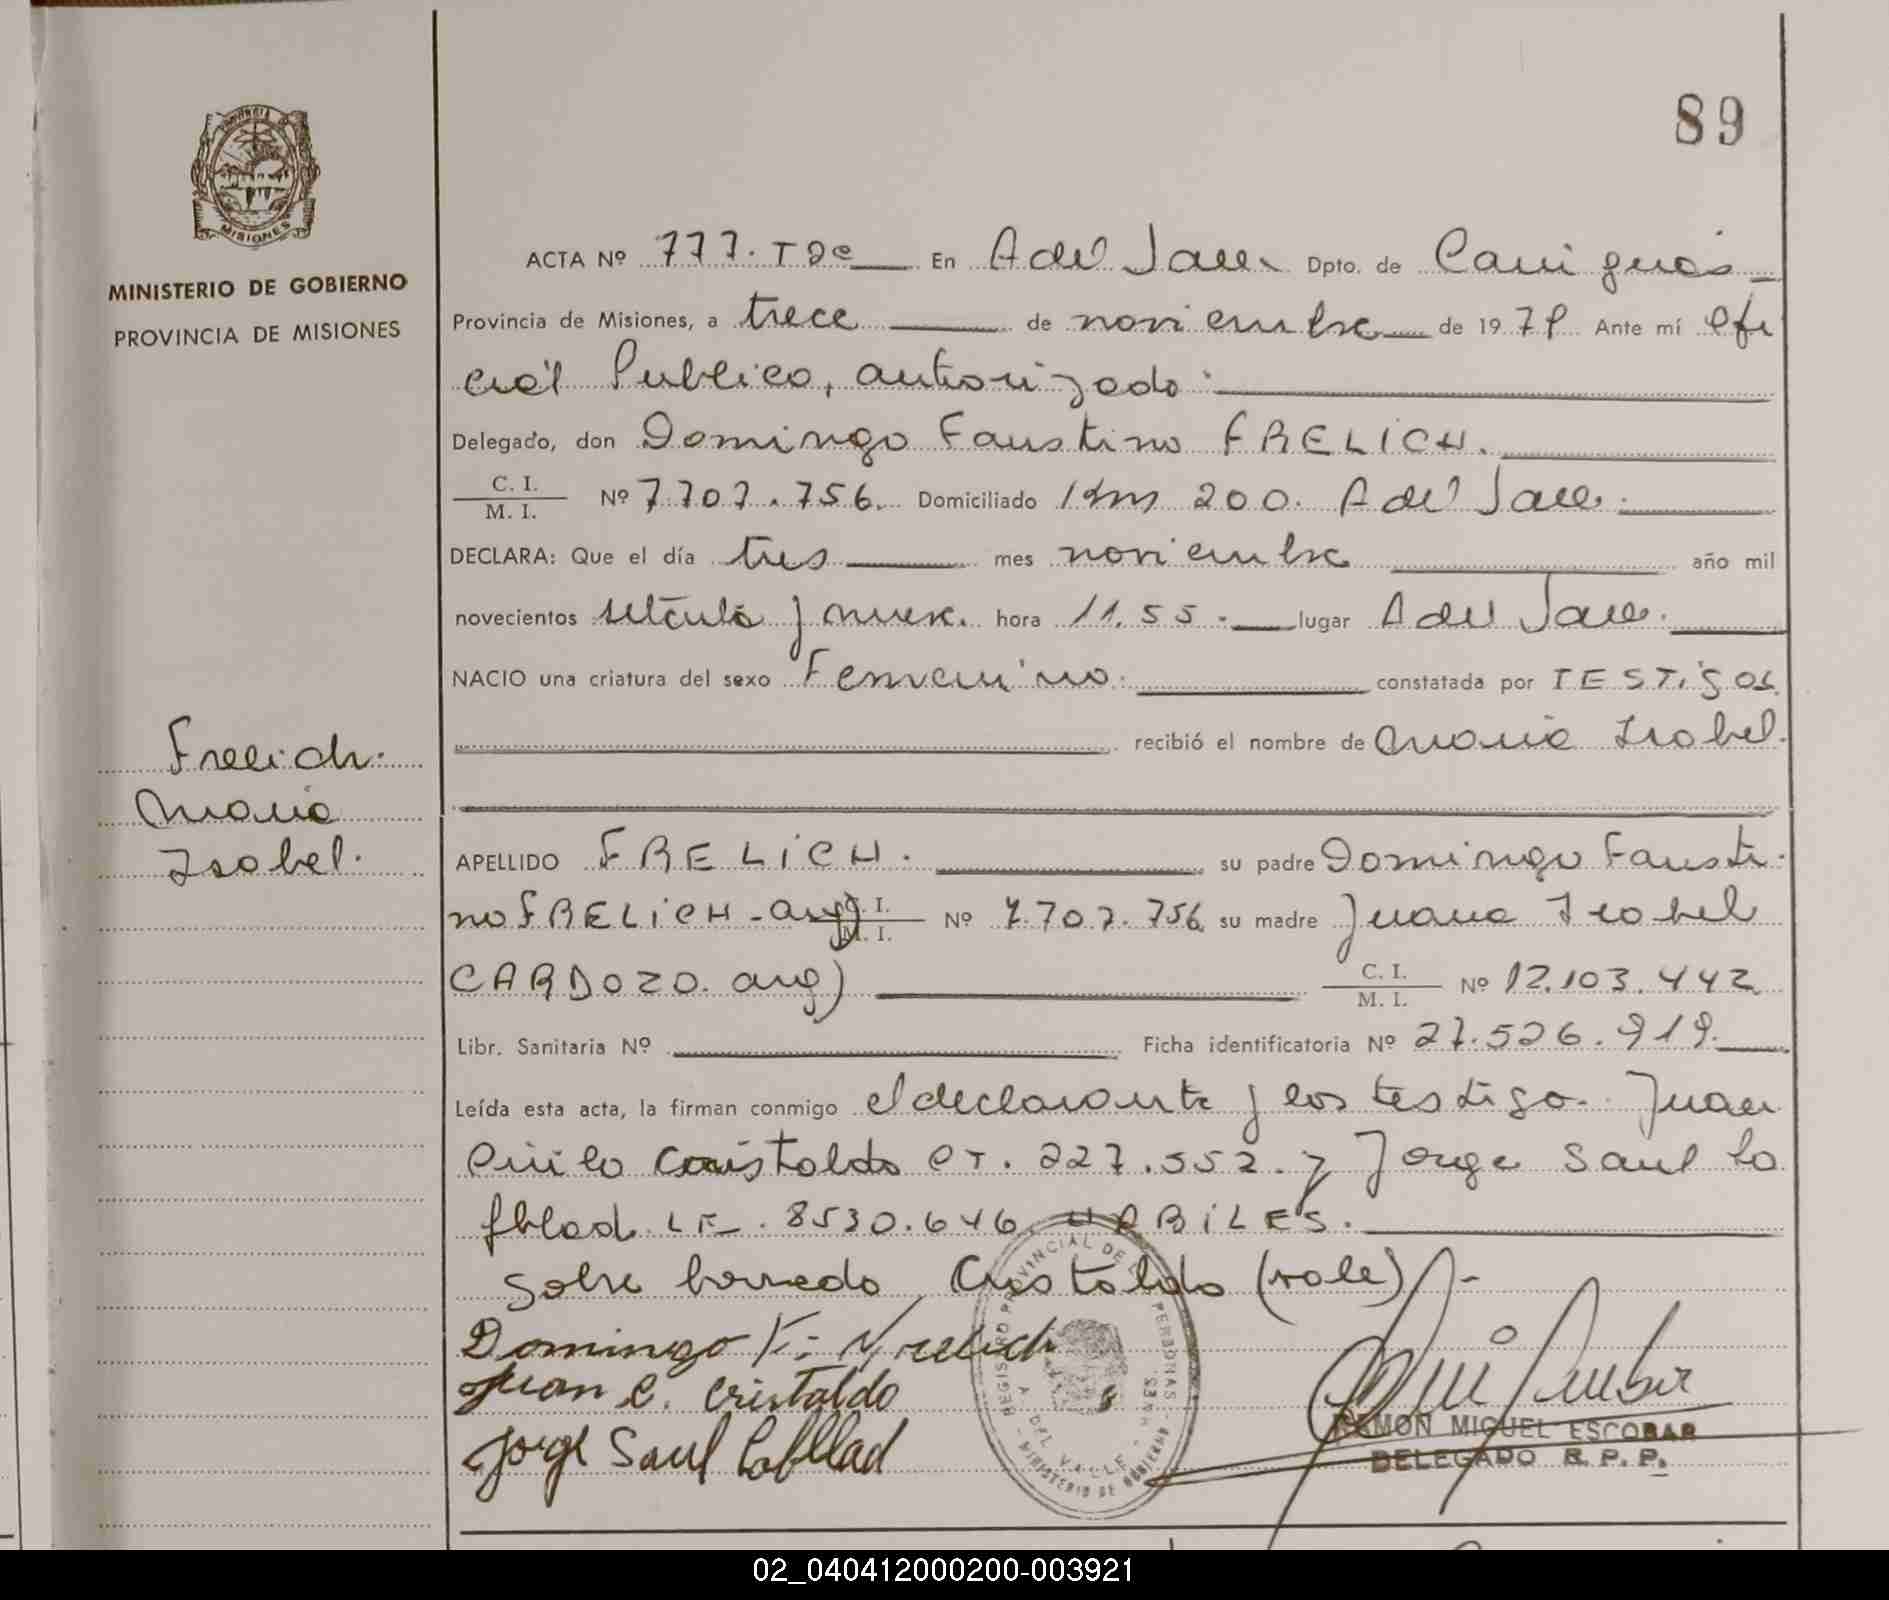 89
PROVINCIA DE
MISIONES
MINISTERIO DE GOBIERNO
PROVINCIA DE MISIONES
ACTA Nº 777. T 2º En A del Valle Dpto. de Cainguás
Provincia de Misiones, a trece de noviembre de 1979 Ante mí Ofi
cial Publico, autorizado
Delegado, don Domingo Faustino FRELICH.
C. I.
M. I. Nº 7.707.756. Domiciliado Km 200. A del Valle.
DECLARA: Que el día tres mes noviembre año mil
novecientos setenta y nueve. hora 11.55. lugar A del Valle.
NACIO una criatura del sexo Femenino. constatada por TESTiGOS.
recibió el nombre de Maria Isabel.
Frelich.
Maria
Isabel.
APELLIDO FRELiCH. su padre Domingo Fausti-
no FRELiCH - arg) C. I.
M. I. Nº 7.707.756 su madre Juana Isabel
CARDOZO. arg) C. I.
M. I. Nº 12.103.442
Libr. Sanitaria Nº Ficha identificatoria Nº 27.526.919.
Leída esta acta, la firman conmigo el declarante y los testigo. Juan
Cirilo Cristaldo CI. 227.552. y Jorge Saul La
fblad LE. 8530.646 HABiLES.
Sobre borrado Cristaldo (vale) -
Domingo F. Frelich
Juan C. Cristaldo
Jorge Saul Lafllad
REGISTRO PROVINCIAL DE LAS PERSONAS
A. DEL VALLE
MINISTERIO DE GOBIERNO
RAMON MIGUEL ESCOBAR
DELEGADO R. P. P.
02_040412000200-003921